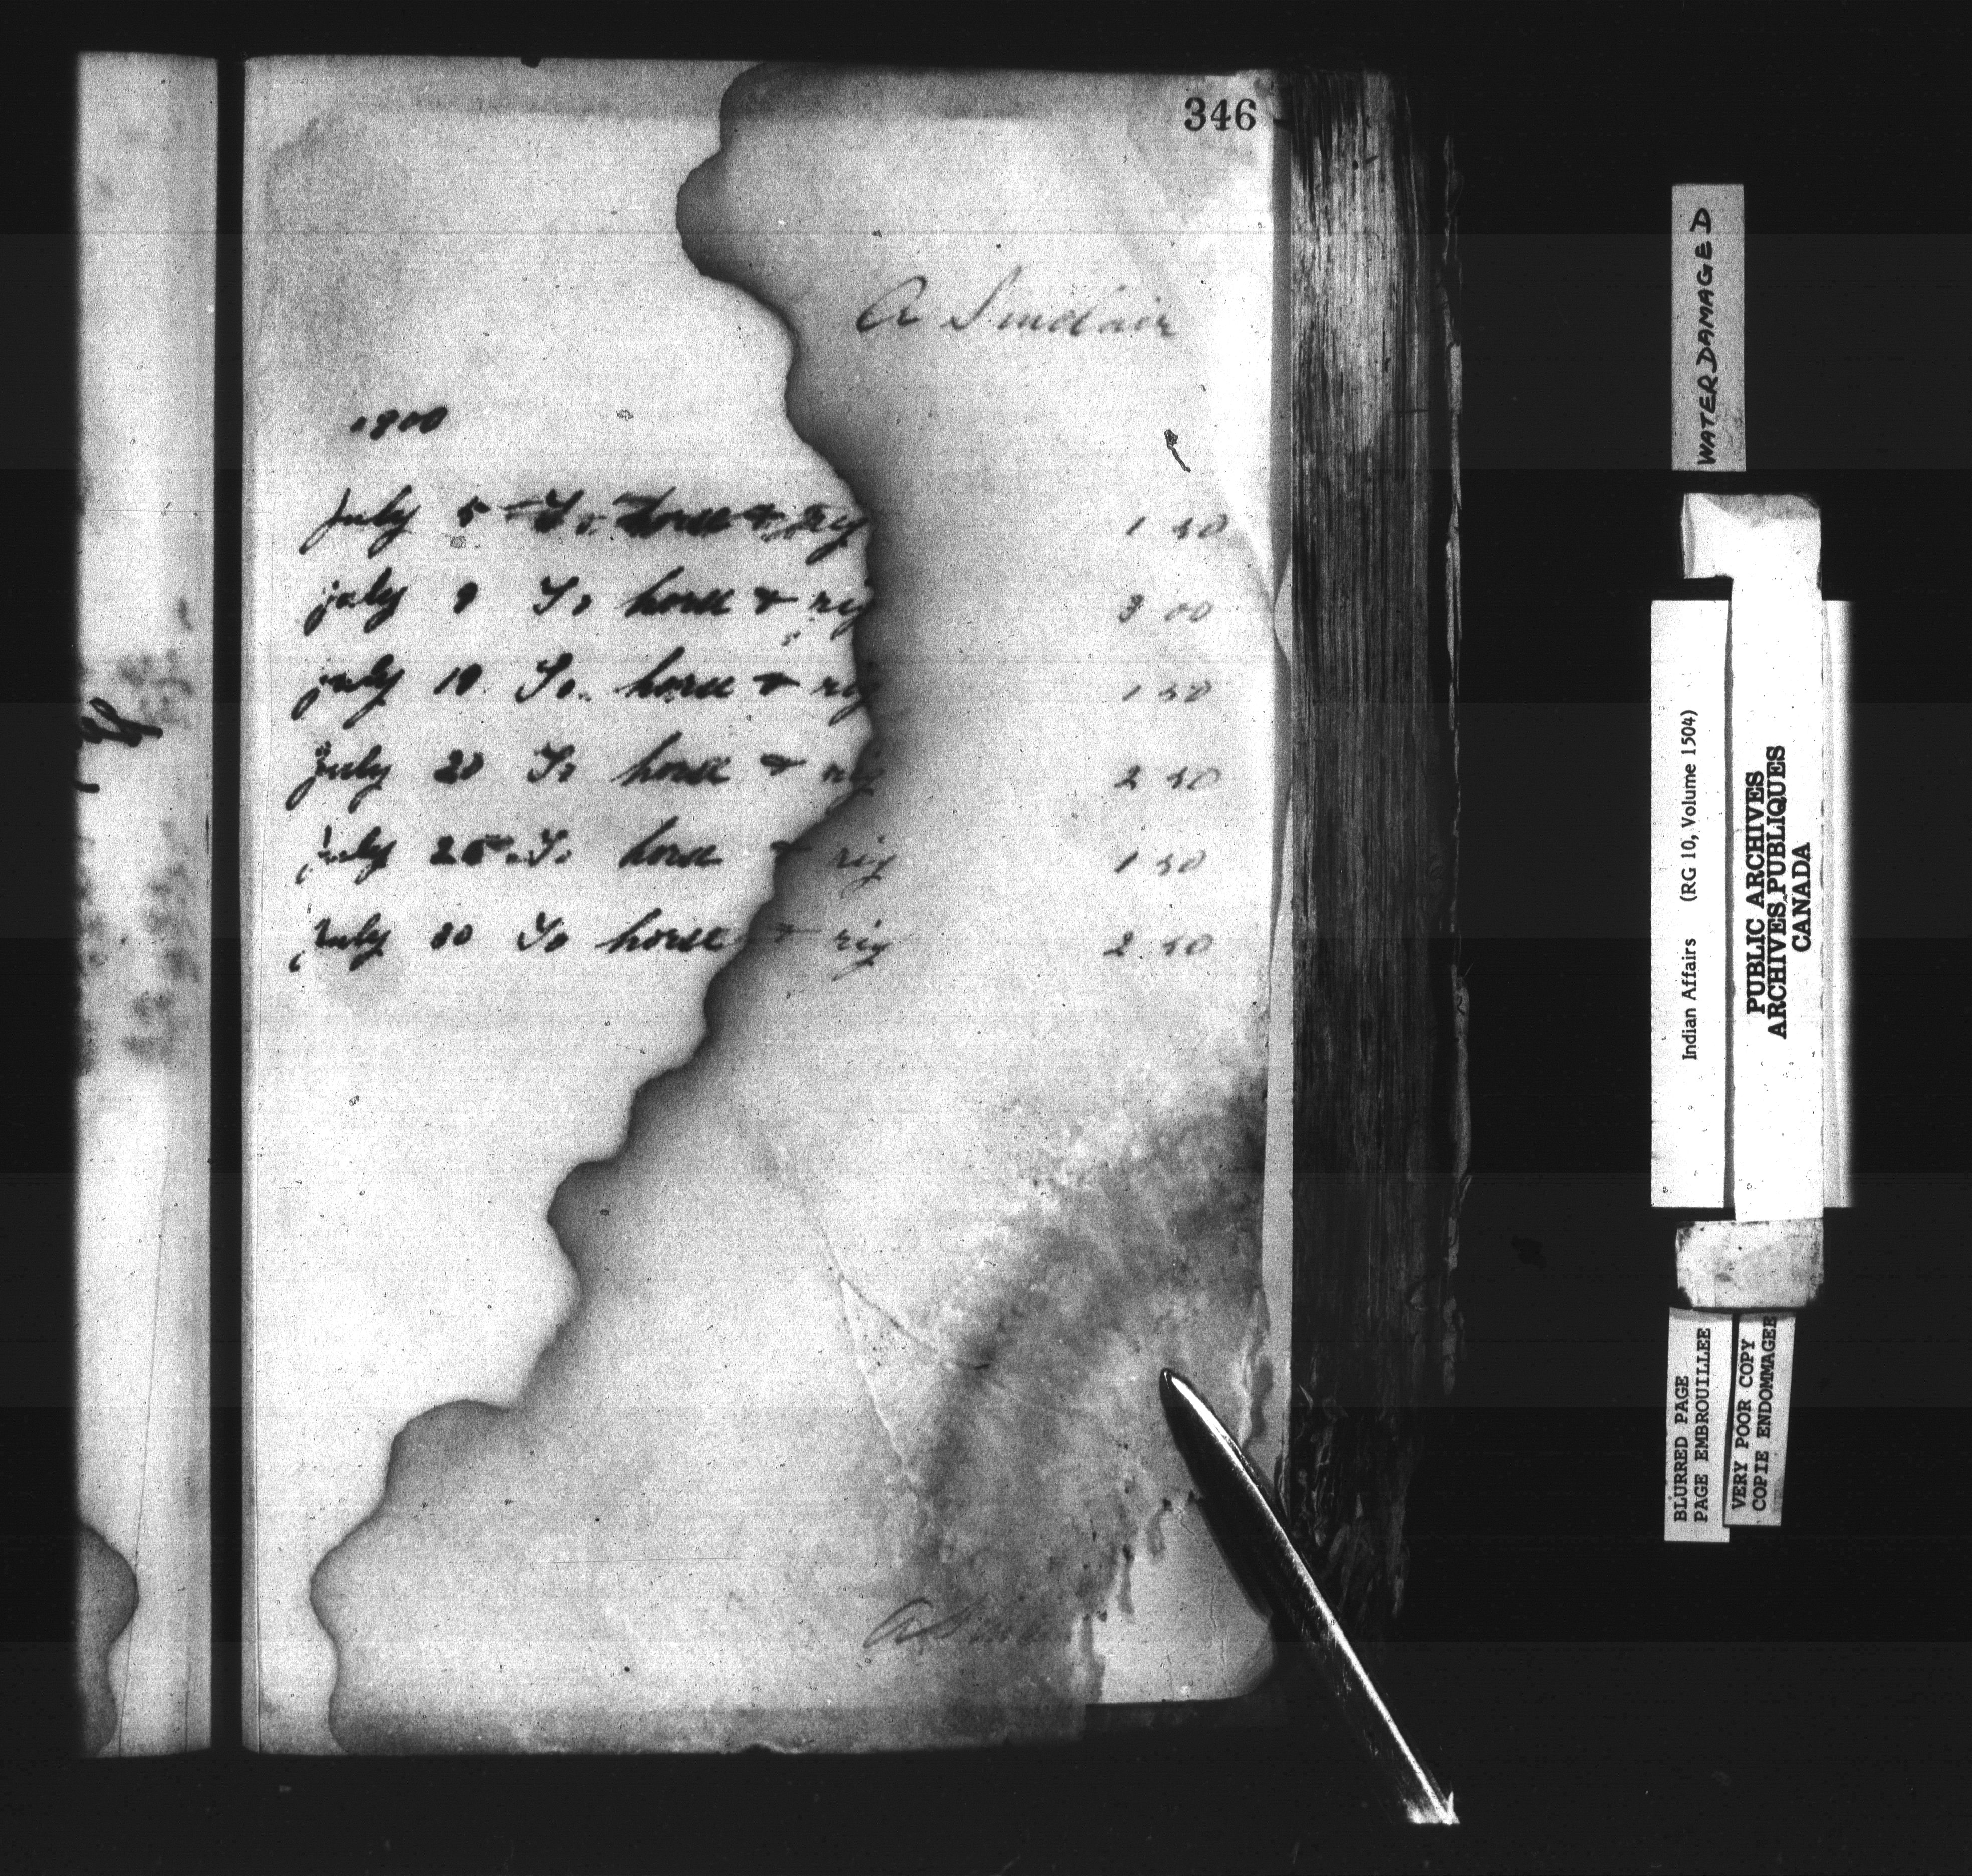 346
A Sinclair
1900
July 5 To horse & rig 1 50
july 9 To horse & rig 3 00
july 10 To horse & rig 1 50
July 20 To horse & rig 2 50
July 25 To horse & rig 1 50
July 30 To horse & rig 2 50
WATER DAMAGED
Indian Affairs (RG 10, Volume 1504)
PUBLIC ARCHIVES
ARCHIVES PUBLIQUES
CANADA
BLURRED PAGE
PAGE EMBROUILLEE
VERY POOR COPY
COPIE ENDOMMAGEE